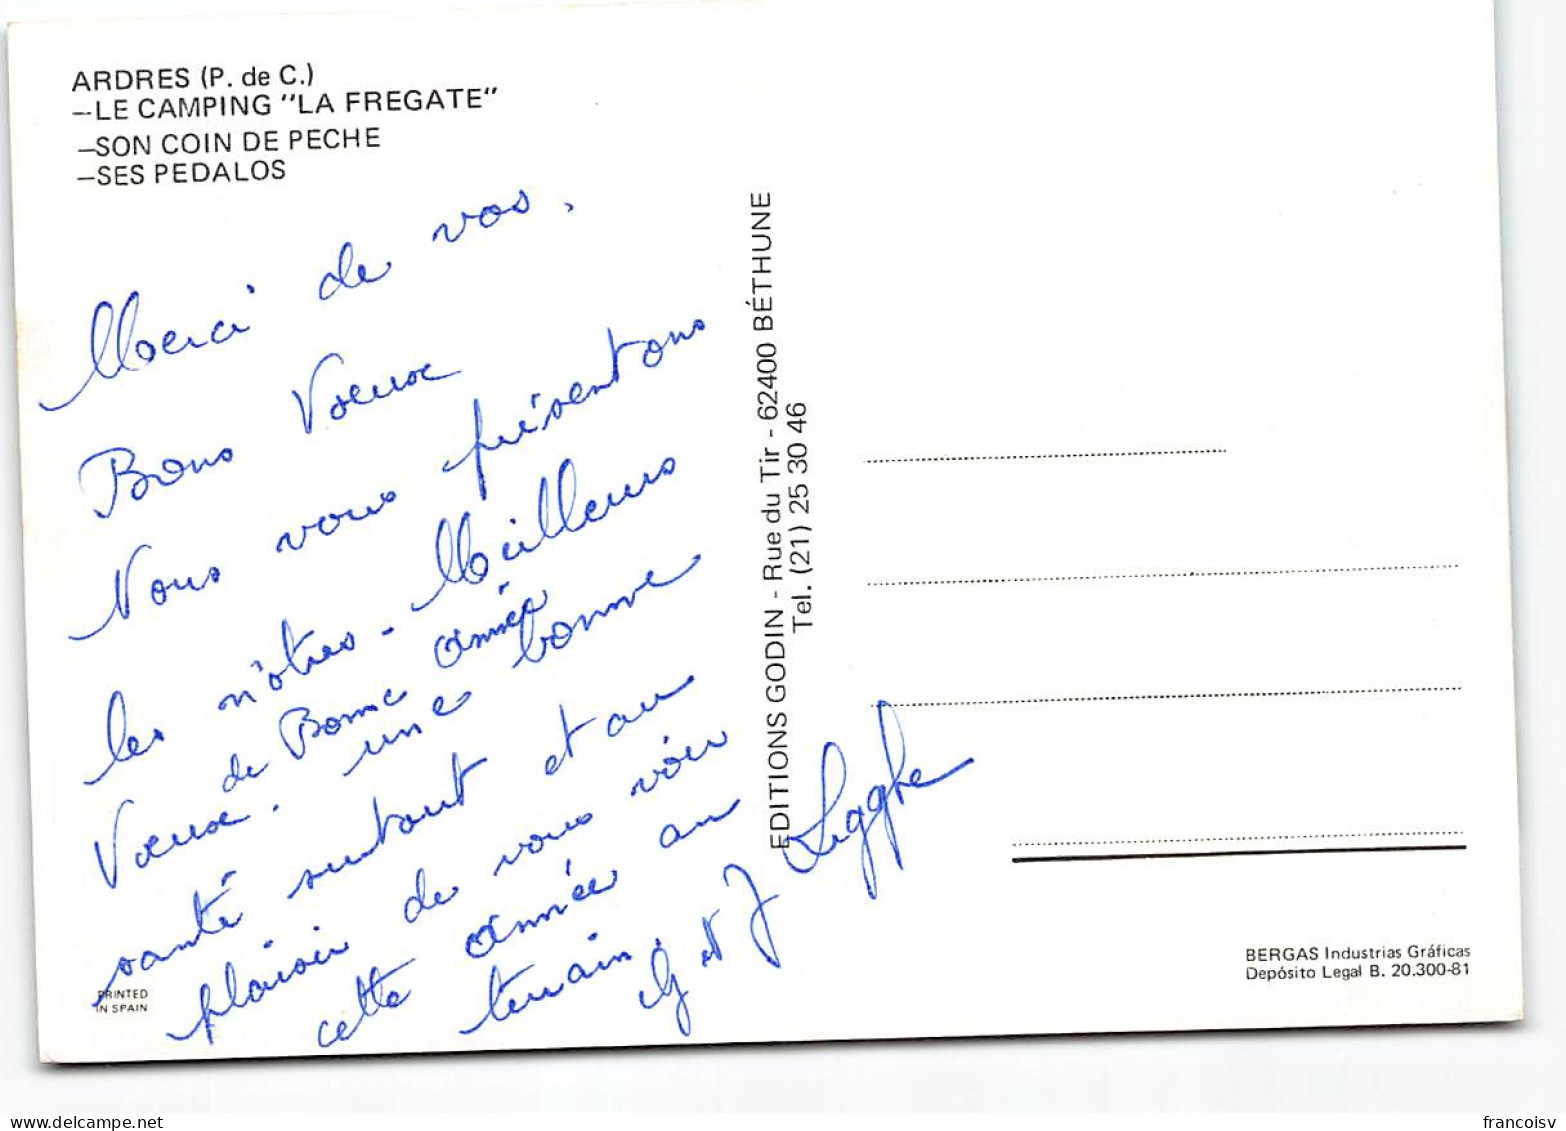 ARDRES (P. de C.)
—LE CAMPING "LA FREGATE"
—SON COIN DE PECHE
—SES PEDALOS
Merci de vos.
Bons Voeux
Nous vous présentons
les nôtres - Meilleurs
Voeux. de Bonne année
une bonne
santé surtout et au
plaisir de vous voir
cette année au
terrain.
G et J Ligghe
EDITIONS GODIN - Rue du Tir - 62400 BÉTHUNE
Tel. (21) 25 30 46
PRINTED
IN SPAIN
BERGAS Industrias Gráficas
Depósito Legal B. 20.300-81
francoisv